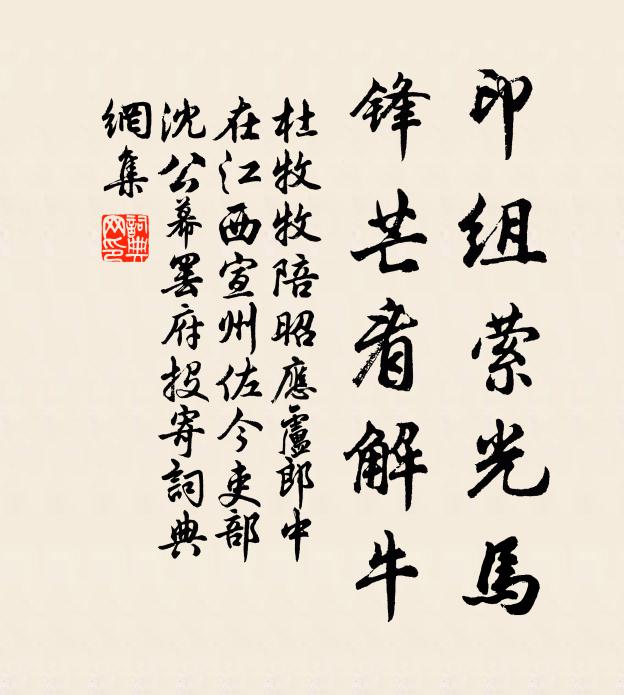 印組縈光馬
鋒芒看解牛
杜牧牧陪昭應盧郎中
在江西宣州佐今吏部
沈公幕罷府投寄詞典
網集
詞典
网印